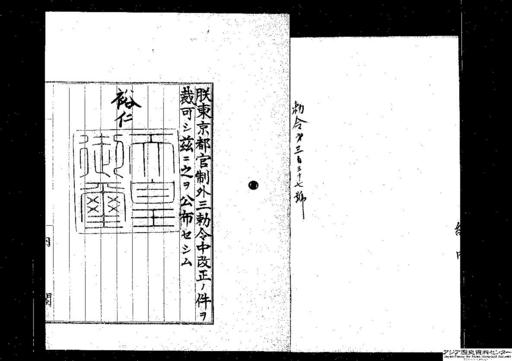 勅令第三百三十七號
朕東京都官制外三勅令中改正ノ件ヲ
裁可シ茲ニ之ヲ公布セシム
裕仁
天皇
御璽
内閣
アジア歴史資料センター